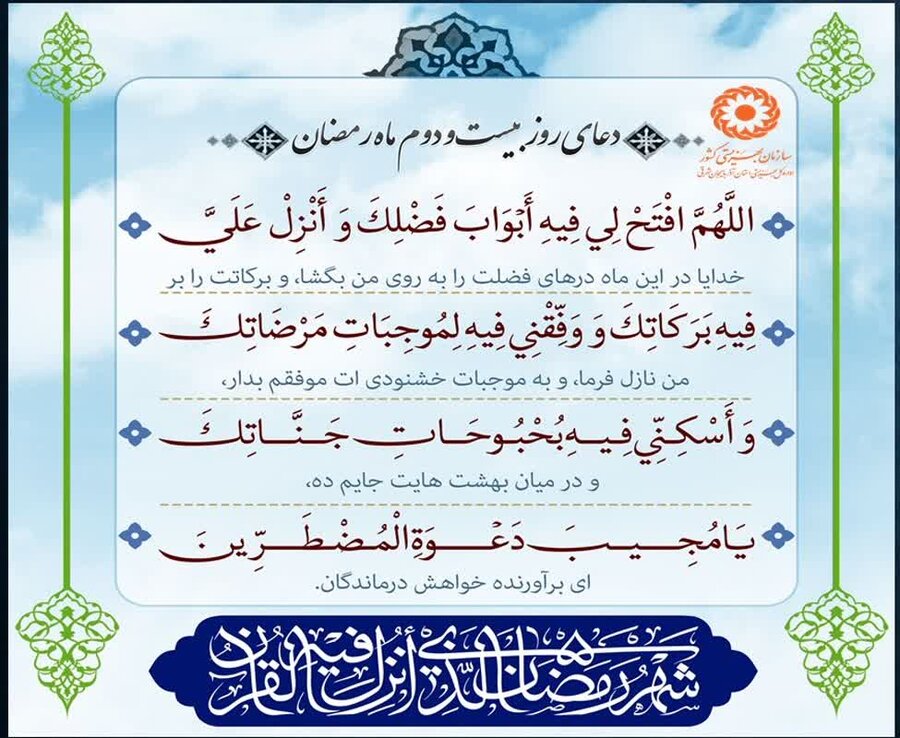 دعای روز بیست و دوم ماه رمضان
سازمان بهزیستی کشور
اداره کل بهزیستی استان آذربایجان شرقی
اللَّهُمَّ افْتَحْ لِي فِيهِ أَبْوَابَ فَضْلِكَ وَ أَنْزِلْ عَلَيَّ
خدایا در این ماه درهای فضلت را به روی من بگشا، و برکاتت را بر
فِيهِ بَرَكَاتِكَ وَ وَفِّقْنِي فِيهِ لِمُوجِبَاتِ مَرْضَاتِكَ
من نازل فرما، و به موجبات خشنودی ات موفقم بدار،
وَ أَسْكِنِّي فِيهِ بُحْبُوحَاتِ جَنَّاتِكَ
و در میان بهشت هایت جایم ده،
يَا مُجِيبَ دَعْوَةِ الْمُضْطَرِّينَ
ای برآورنده خواهش درماندگان.
شهر رمضان الذی أنزل فیه القرآن